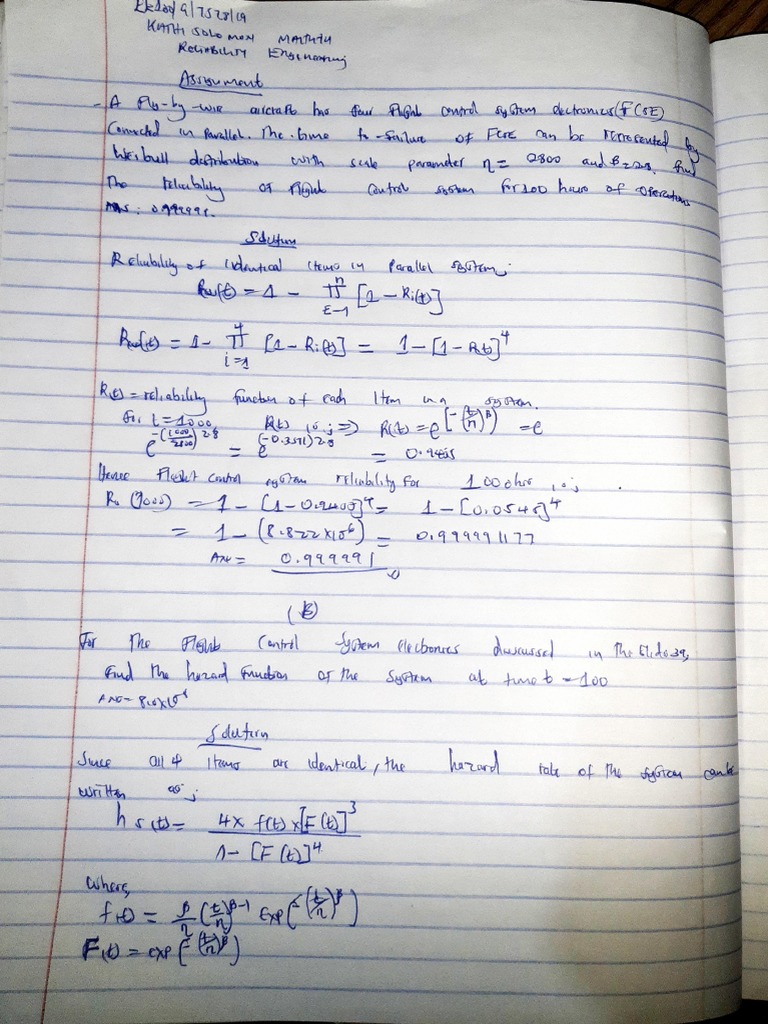 KATHI SOLOMON MAITHYA
Reliability Engineering
Assignment
- A Fly-by-wire aircraft has four flight control system electronics (FCSE)
Connected in Parallel. The time to-failure of FCSE can be represented by
Weibull distribution with scale parameter η = 2800 and β=2.8. find
The reliability of flight control system for 100 hours of operations
Ans: 0.999991.
Solution
Reliability of identical items in Parallel system;
(t) = 1 - π^n [1 - Ri(t)]
(t) = 1 - π^4 i=1 [1 - Ri(t)] = 1 - [1 - R(t)]^4
R(t) = reliability function of each item in a system.
For t = 1000, R(t) is; => R(t) = e^[-(t/η)^β] = e
e^-(1000/2800)^2.8 = e^(-0.3571)^2.8 =
Hence Flight control system reliability for 1000hrs is;
(1000) = 1 - [1 - ]^4 = 1 - [0.0545]^4
= 1 - (8.822 x 10^-6) = 0.999991177
Ans = 0.999991
(B)
For The Flight Control System electronics discussed in The Slide 39,
find the hazard function of the system at time t = 100
Solution
Since all 4 items are identical, the hazard rate of the system can be
written as;
hs(t) = 4 x f(t) x [F(t)]^3 / 1 - [F(t)]^4
where,
f(t) = β/η (t/η)^β-1 exp(-(t/η)^β)
F(t) = exp(-(t/η)^β)